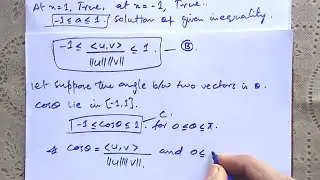 At x=1, True, at x=-1, True..
-1≤a≤1 solution of given inequality.
-1 ≤ <u,v> / ||u|| ||v|| ≤ 1. — B
Let suppose the angle b/w two vectors is θ.
cosθ lie in [-1,1].
-1≤cosθ≤1. for 0≤θ≤π. C.
⇒ cosθ = <u,v> / ||u|| ||v||. and 0≤